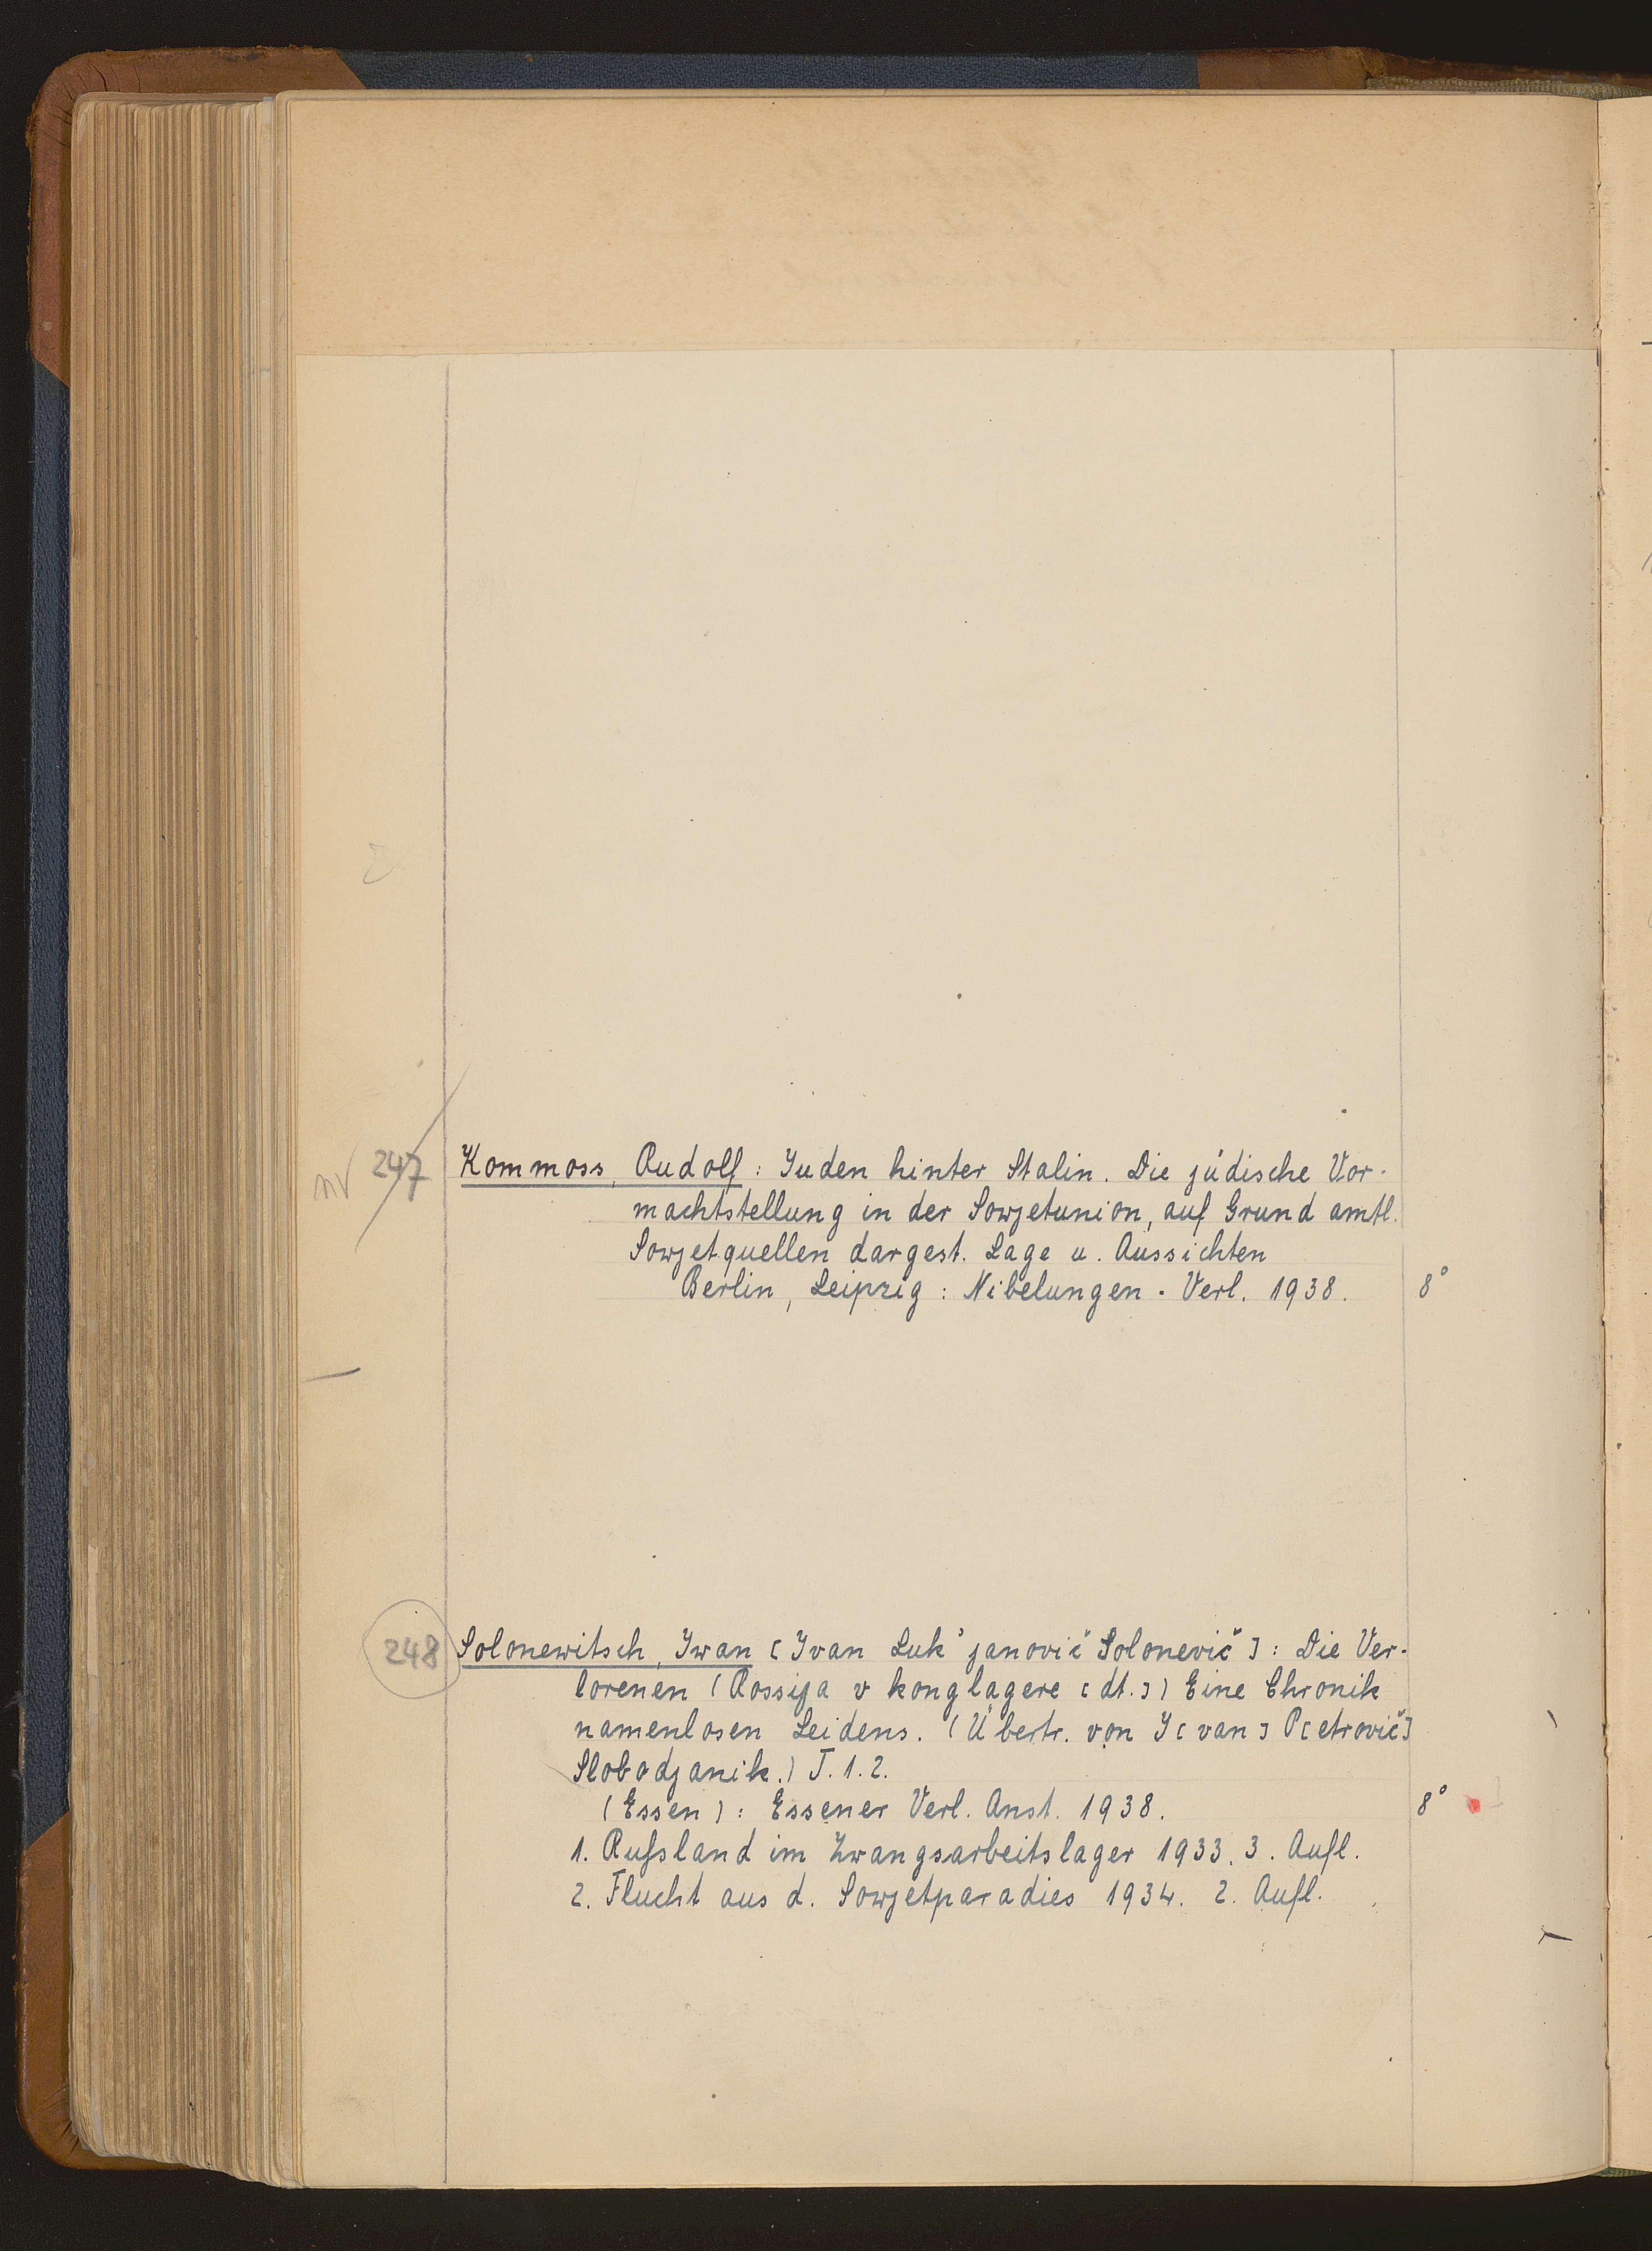 247 Kommoss, Rudolf: Juden hinter Stalin. Die jüdische Vor-
machtstellung in der Sowjetunion, auf Grund amtl.
Sowjetquellen dargest. Lage u. Aussichten
Berlin, Leipzig: Nibelungen-Verl. 1938. 8°
248 Solonewitsch, Iwan [Ivan Luk'janovič Solonevič]: Die Ver-
lorenen (Rossija v konglagere [dt.]) Eine Chronik
namenlosen Leidens. (Übertr. von I[van] P[etrovič]
Slobodjanik.) T. 1.2.
(Essen): Essener Verl. Anst. 1938. 8°
1. Rußland im Zwangsarbeitslager 1933. 3. Aufl.
2. Flucht aus d. Sowjetparadies 1934. 2. Aufl.